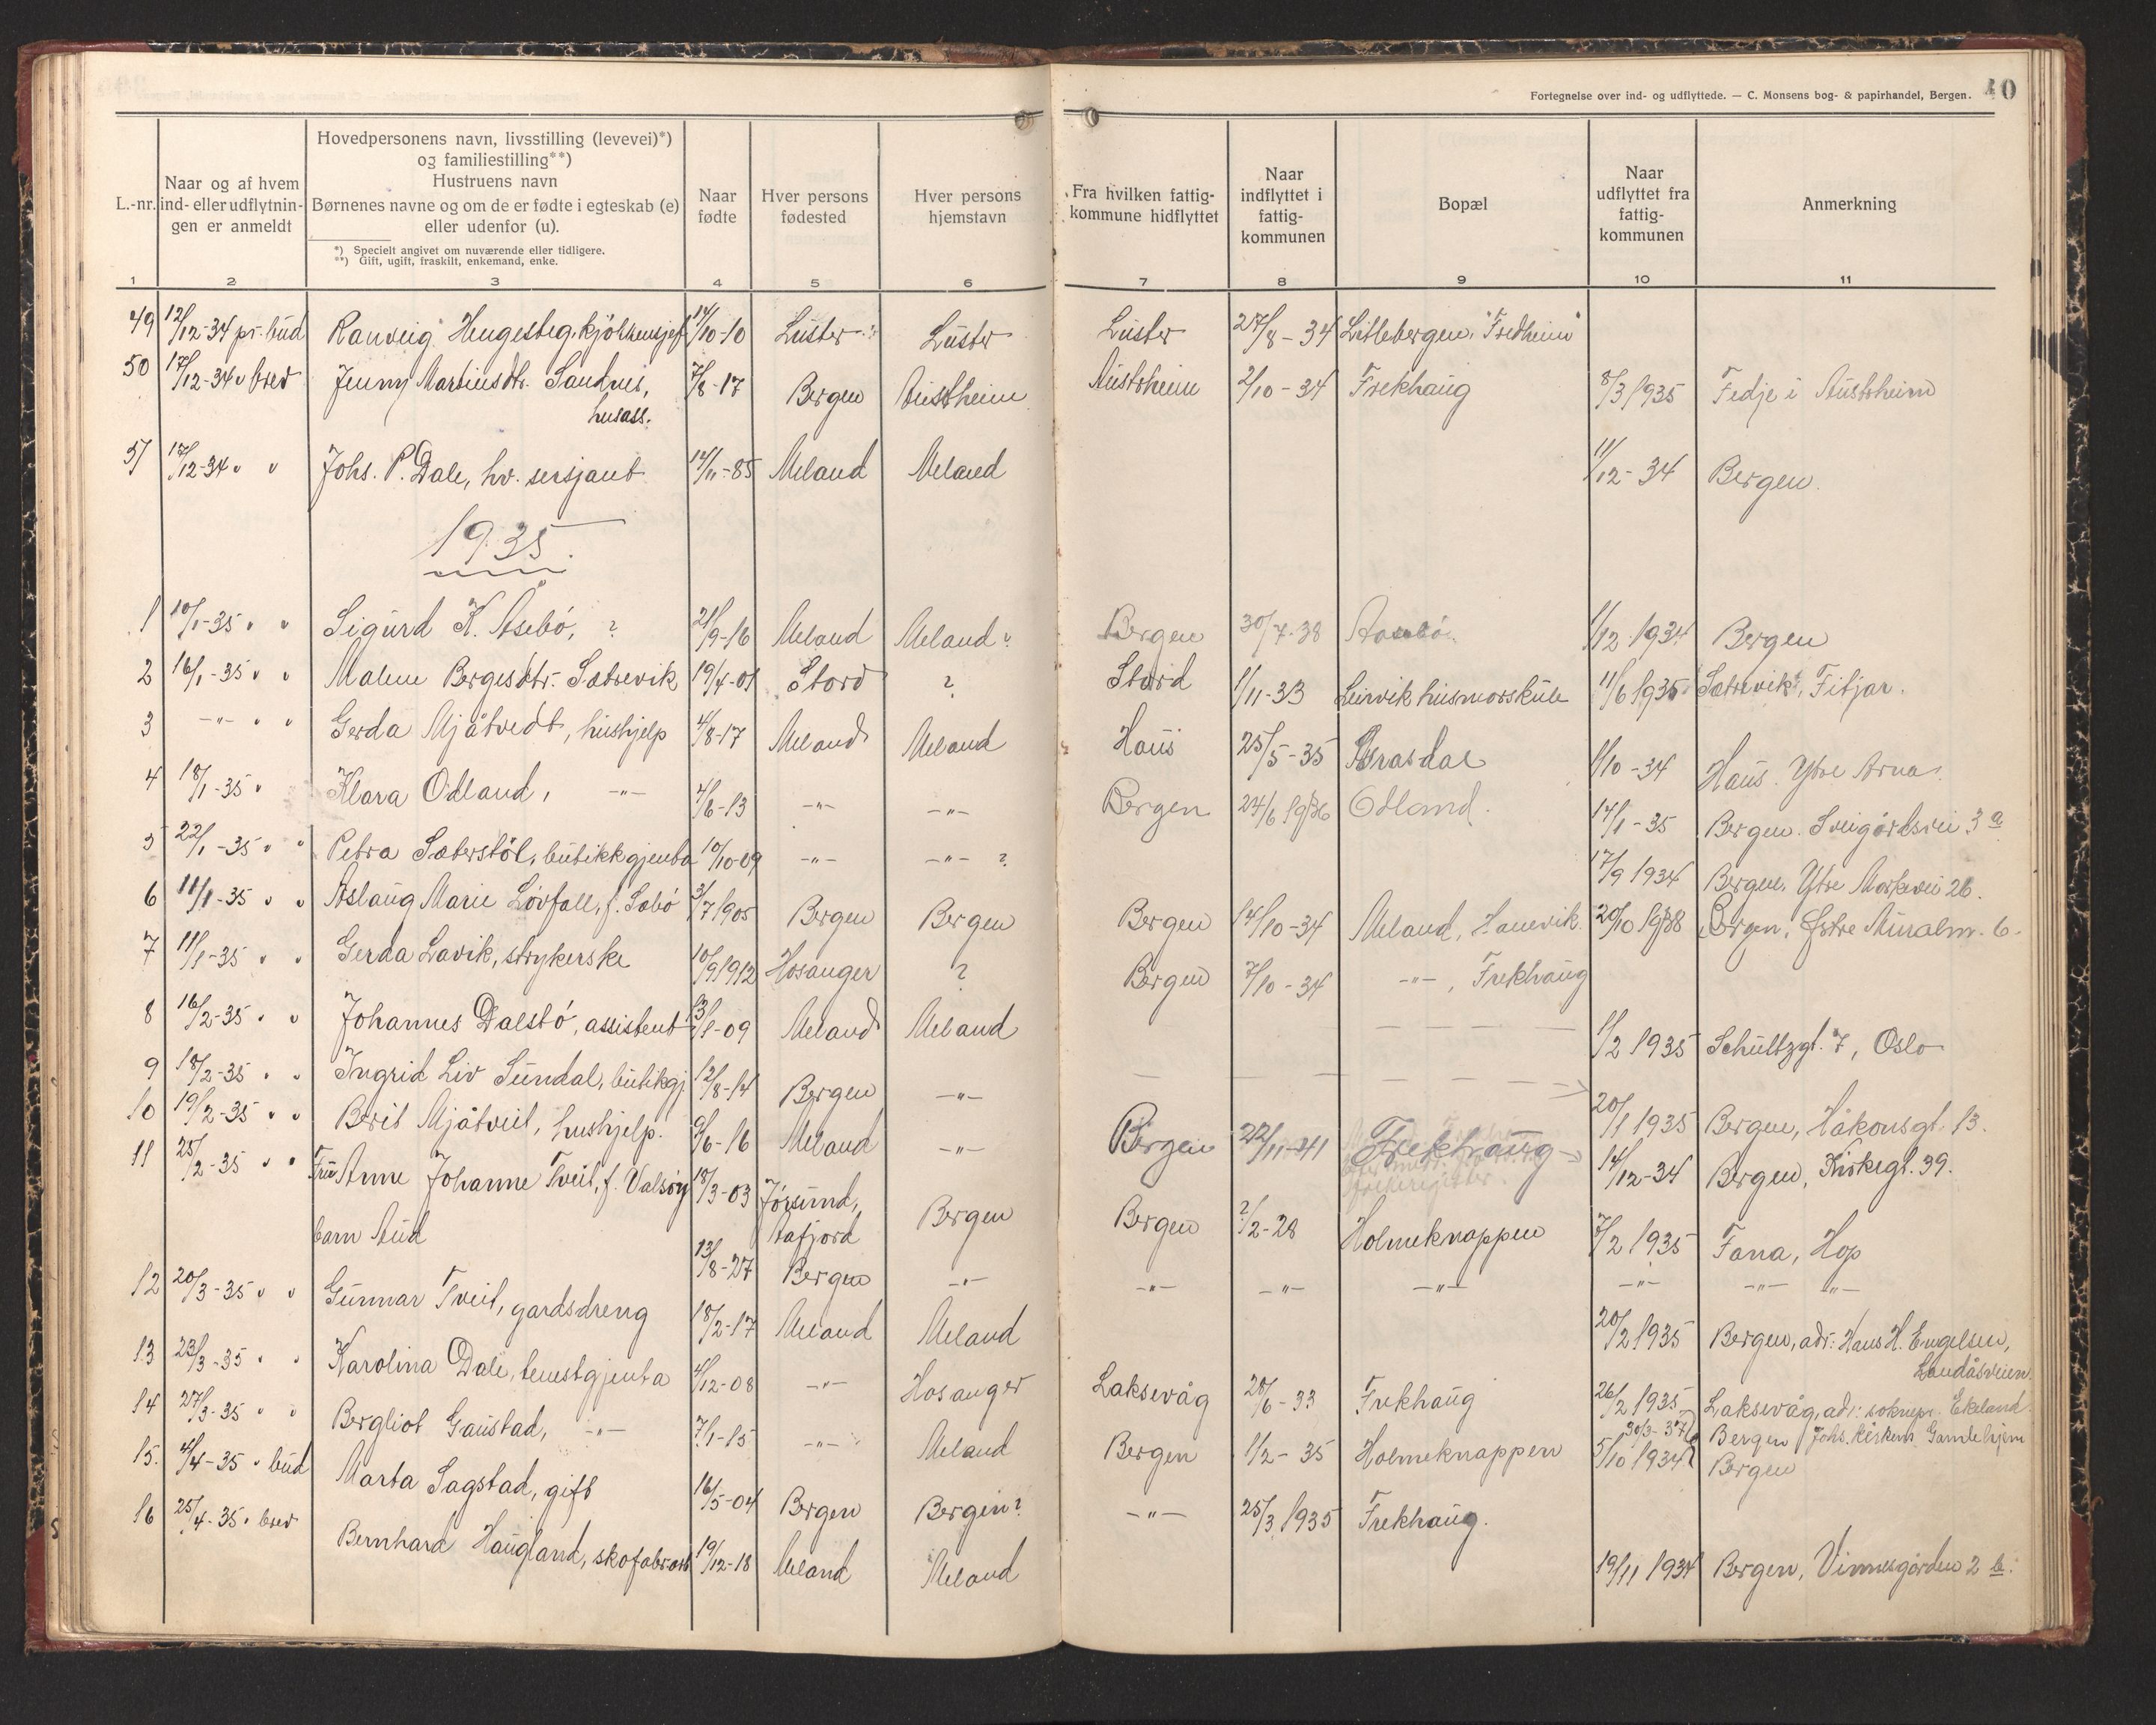 Fortegnelse over ind- og udflyttede. — C. Monsens bog- & papirhandel, Bergen. 40
L.-nr. Naar og af hvem ind- eller udflytningen er anmeldt
Hovedpersonens navn, livsstilling (levevei)*)
og familiestilling**)
Hustruens navn
Børnenes navne og om de er fødte i egteskab (e)
eller udenfor (u).
*) Specielt angivet om nuværende eller tidligere.
**) Gift, ugift, fraskilt, enkemand, enke.
Naar fødte
Hver persons fødested
Hver persons hjemstavn
Fra hvilken fattig-kommune hidflyttet
Naar indflyttet i fattig-kommunen
Bopæl
Naar udflyttet fra fattig-kommunen
Anmerkning
1 2 3 4 5 6 7 8 9 10 11
49 12/12-34 pr. bud Ranveig Hengesteg, kjökkensjef 14/10-10 Luster ? Luster Luster 27/8-34 Litlebergen, "Fredheim"
50 17/12-34 " brev Jenny Martinsdtr. Sandnes, 7/8-17 Bergen Austrheim Austrheim 2/10-34 Frekhaug 8/3 1935 Fedje i Austrheim
husass.
51 17/12-34 " " Johs. P. Dale, hv. sersjant 14/11-85 Meland Meland 11/12-34 Bergen.
1935.
1 10/1-35 " " Sigurd K. Åsebö, ? 21/9-16 Meland Meland ? Bergen 30/4-38 Aasebö. 1/12 1934 Bergen
2 16/1-35 " " Malene Bergesdtr. Sætrevik 19/4-01 Stord ? Stord 1/11-33 Leirvik husmorskule 11/6 1935 Sætrevik, Fitjar.
3 -"- " " Gerda Mjåtvedt, hushjelp 4/8-17 Meland Meland Haus 25/5-35 Brasdal 1/10-34 Haus. Ytre Arna.
4 18/1-35 " Klara Odland, -"- 4/6-13 -"- -"- Bergen 24/6 1936 Odland. 14/1-35 Bergen. Sveigårdsvei 3 a
5 22/1-35 " " Petra Sæterstöl, butikkgjenta 10/10-09 -"- -"- ? 17/9 1934 Bergen, Ytre Markevei 26.
6 11/1-35 " " Aslaug Marie Lövfall, f. Sæbö 3/7 1905 Bergen Bergen Bergen 14/10-34 Meland, Hanevik. 20/10 1938 Bergen, Østre Muralm. 6.
7 11/1-35 " " Gerda Lavik, strykerske 10/9 1912 Hosanger ? Bergen 7/10-34 -"-, Frekhaug
8 16/2-35 " " Johannes Dalstö, assistent 13/1-09 Meland Meland 1/2 1935 Schultzgt. 7, Oslo
9 18/2-35 " " Ingrid Liv Sundal, butikgj 12/8-14 Bergen -"- 20/1 1935 Bergen, Håkonsgt. 13.
10 19/2-35 " " Berit Mjåtveit, hushjelp. 9/6-16 Meland -"- Bergen 22/11-41 Frekhaug 14/12-34 Bergen, Kirkegt. 39.
11 25/2-35 " " Fru Anne Johanne Tveit, f. Valsöy 18/3-03 Jörsund, Aafjord Bergen Bergen ?/2-28 Holmeknappen 7/2 1935 Fana, Hop
barn Aud 13/8-27 Bergen -"- -"- -"- -"- -"- -"- -"-
12 20/3-35 " " Gunnar Tveit, gardsdreng 18/2-17 Meland Meland 20/2 1935 Bergen, adr: Hans H. Engelsen,
Landåsveien.
13 23/3-35 " " Karolina Dale, tenestgjenta 4/12-08 -"- Hosanger Laksevåg 20/6-33 Frekhaug 26/2 1935 Laksevåg, adr: soknepr. Ekeland.
14 27/3-35 " " Bergliot Gaustad, -"- 7/1-15 -"- Meland Bergen 1/2-35 Holmeknappen 30/3-37 Bergen
5/10 1934 Bergen
15. 4/4-35 " bud Marta Sagstad, gift 16/5-04 Bergen Bergen ? -"- 25/3 1935 Frekhaug.
16 25/4-35 " brev Bernhard Haugland, skofabrarb 19/12-18 Meland Meland 19/11 1934 Bergen, Vinnesgården 2 b.